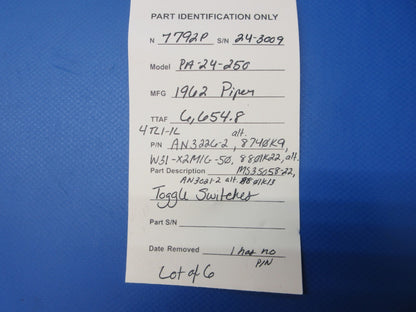 PART IDENTIFICATION ONLY
N 7792P S/N 24-3009
Model PA-24-250
MFG 1962 Piper
TTAF 6,654.8
4TL1-1L alt.
P/N AN3226-2, 8740K9,
W31-X2M1G-50, 8801K22, alt.
Part Description MS35058-22,
AN3021-2 alt. 8801K13
Toggle Switches
Part S/N
Date Removed 1 has no
P/N
Lot of 6